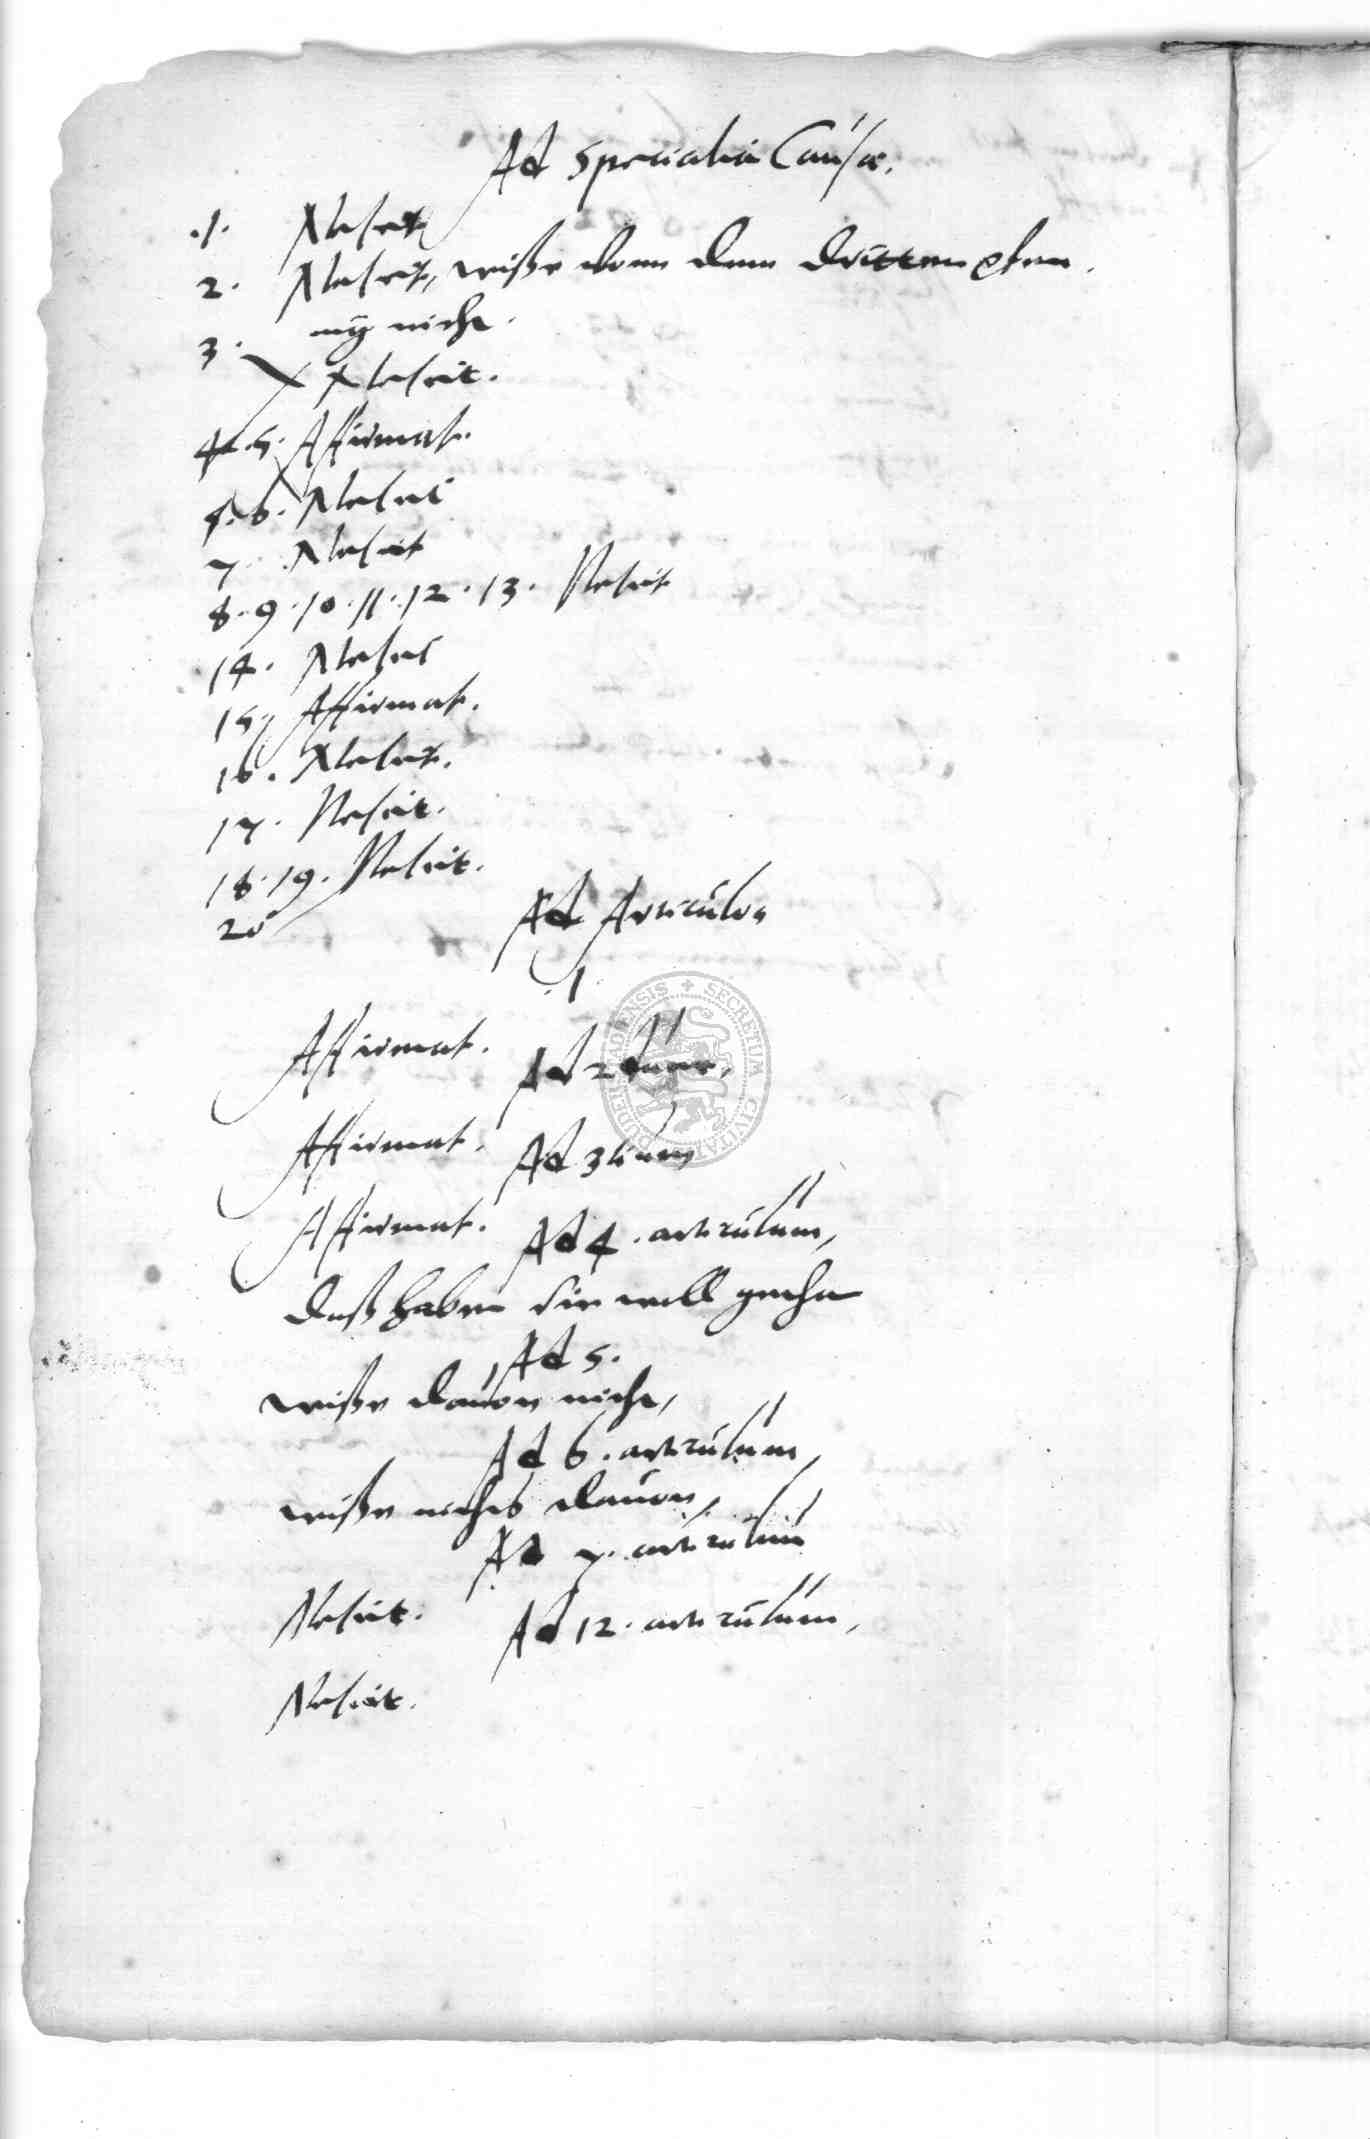 Ad specialia Causae.
.1. Nescit
2. Nescit, wisse vonn dem dritten pfen
3. nig nicht.
Nescit.
4. 5. Affirmat.
6. Nescit
7. Nescit
8. 9. 10. 11. 12. 13. Nescit
14. Nescit
15. Affirmat.
16. Nescit.
17. Nescit.
18. 19. Nescit.
20
Ad Articulos
.1.
Affirmat.
Ad 2dum.
Affirmat.
Ad 3tium
Affirmat.
Ad 4. articulum,
Daß haben sie woll gethan
Ad 5.
wisse dauon nicht,
Ad 6. articulum,
wisse nichts dauon,
Ad 7. articulum
Nescit.
Ad 12. articulum,
Nescit.
SECRETUM CIVITATIS DUDERSTADENSIS